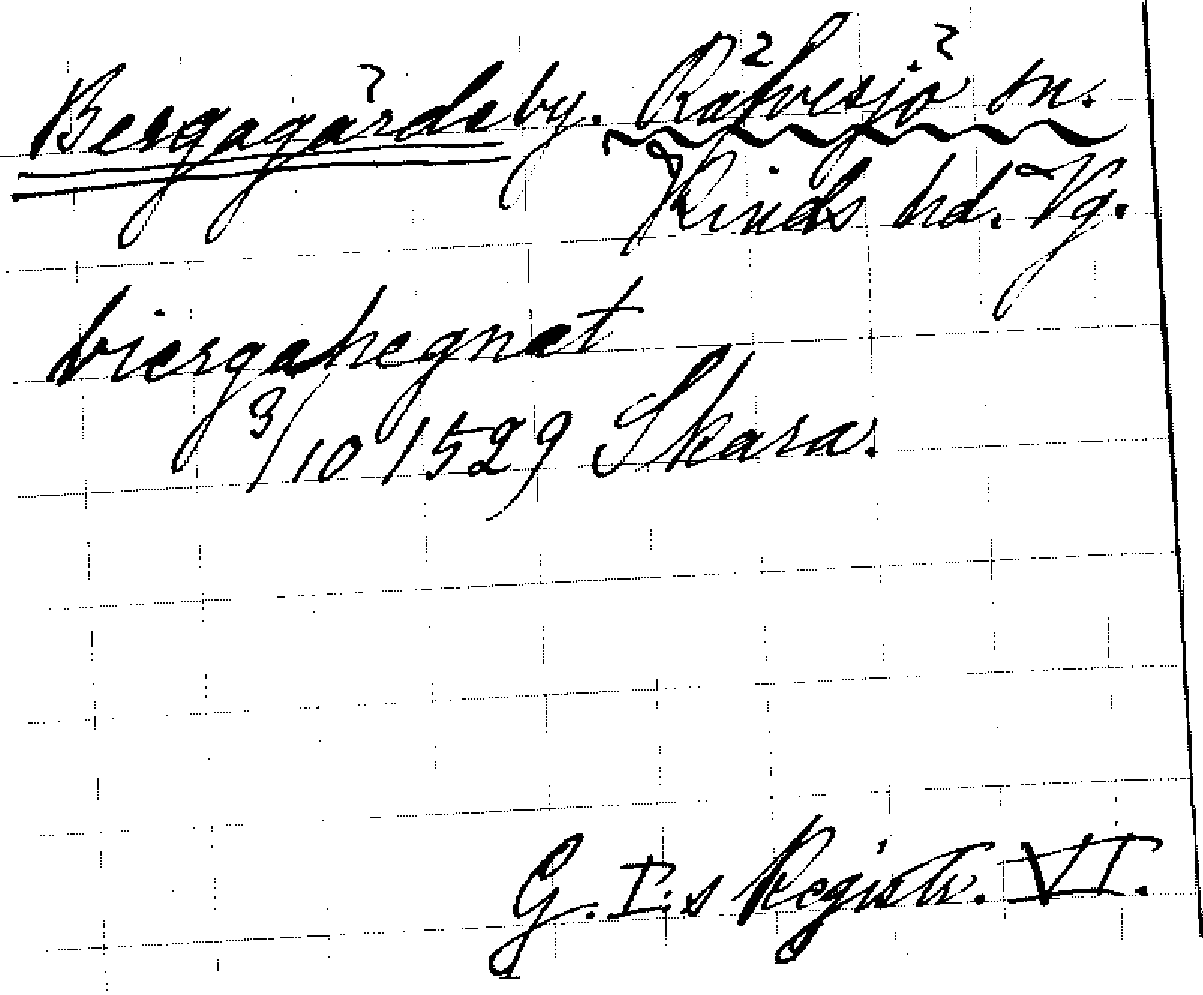 Bergagärde by. Kalvsjö sn.
Kinds hd. Vg.
biergahegnat
3/10 1529 Skara.
G. I:s Registr. VI.